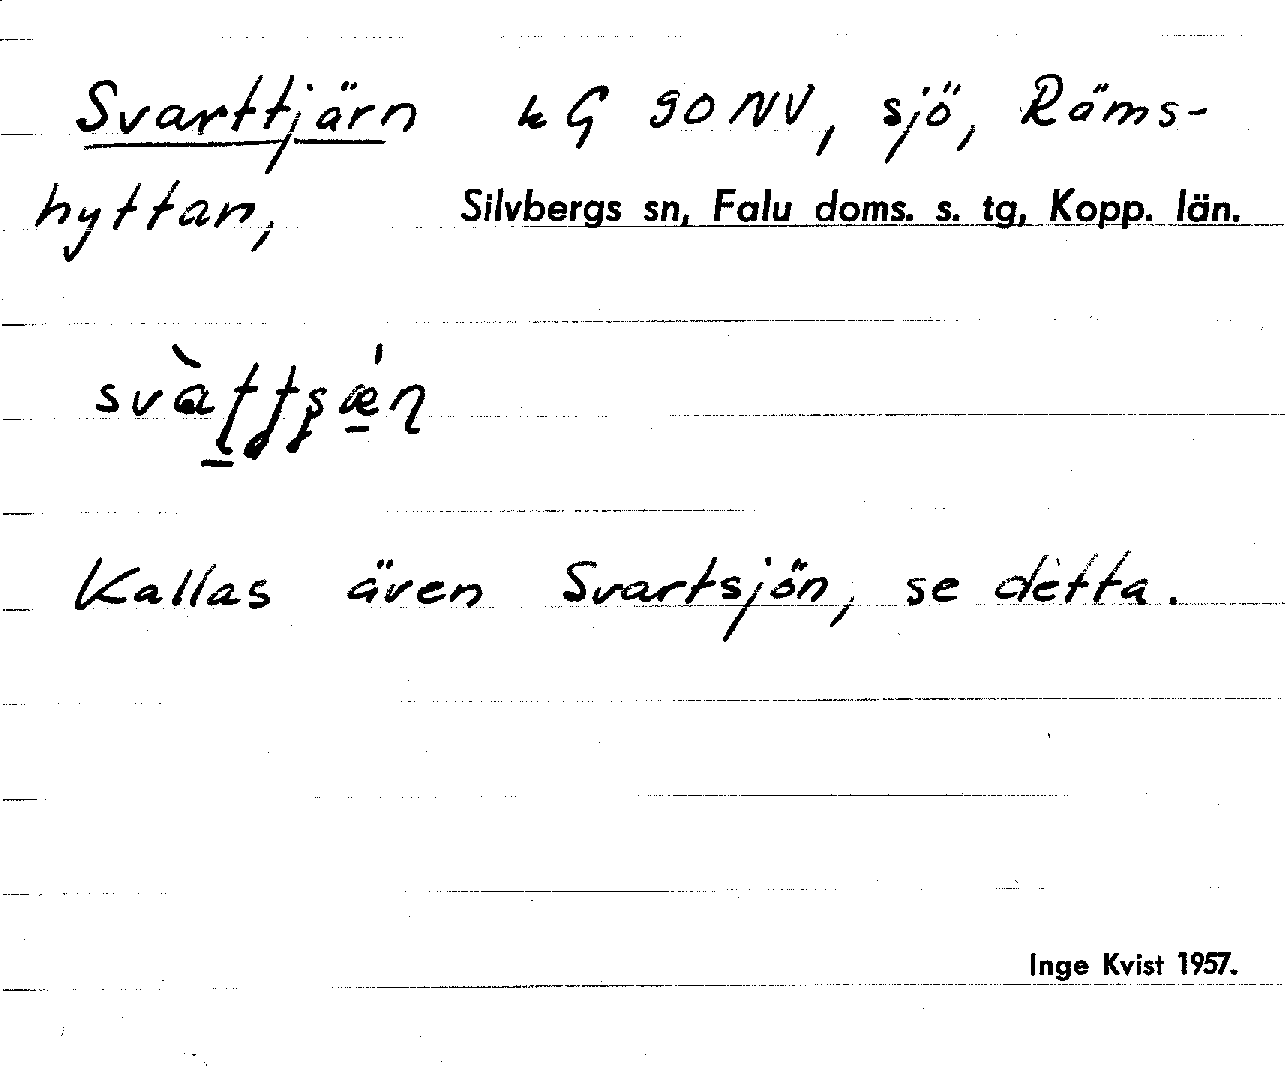 Svarttjärn kG 90 NV, sjö, Räms-
hyttan, Silvbergs sn, Falu doms. s. tg, Kopp. län.
Kallas även Svartsjön, se detta.
Inge Kvist 1957.